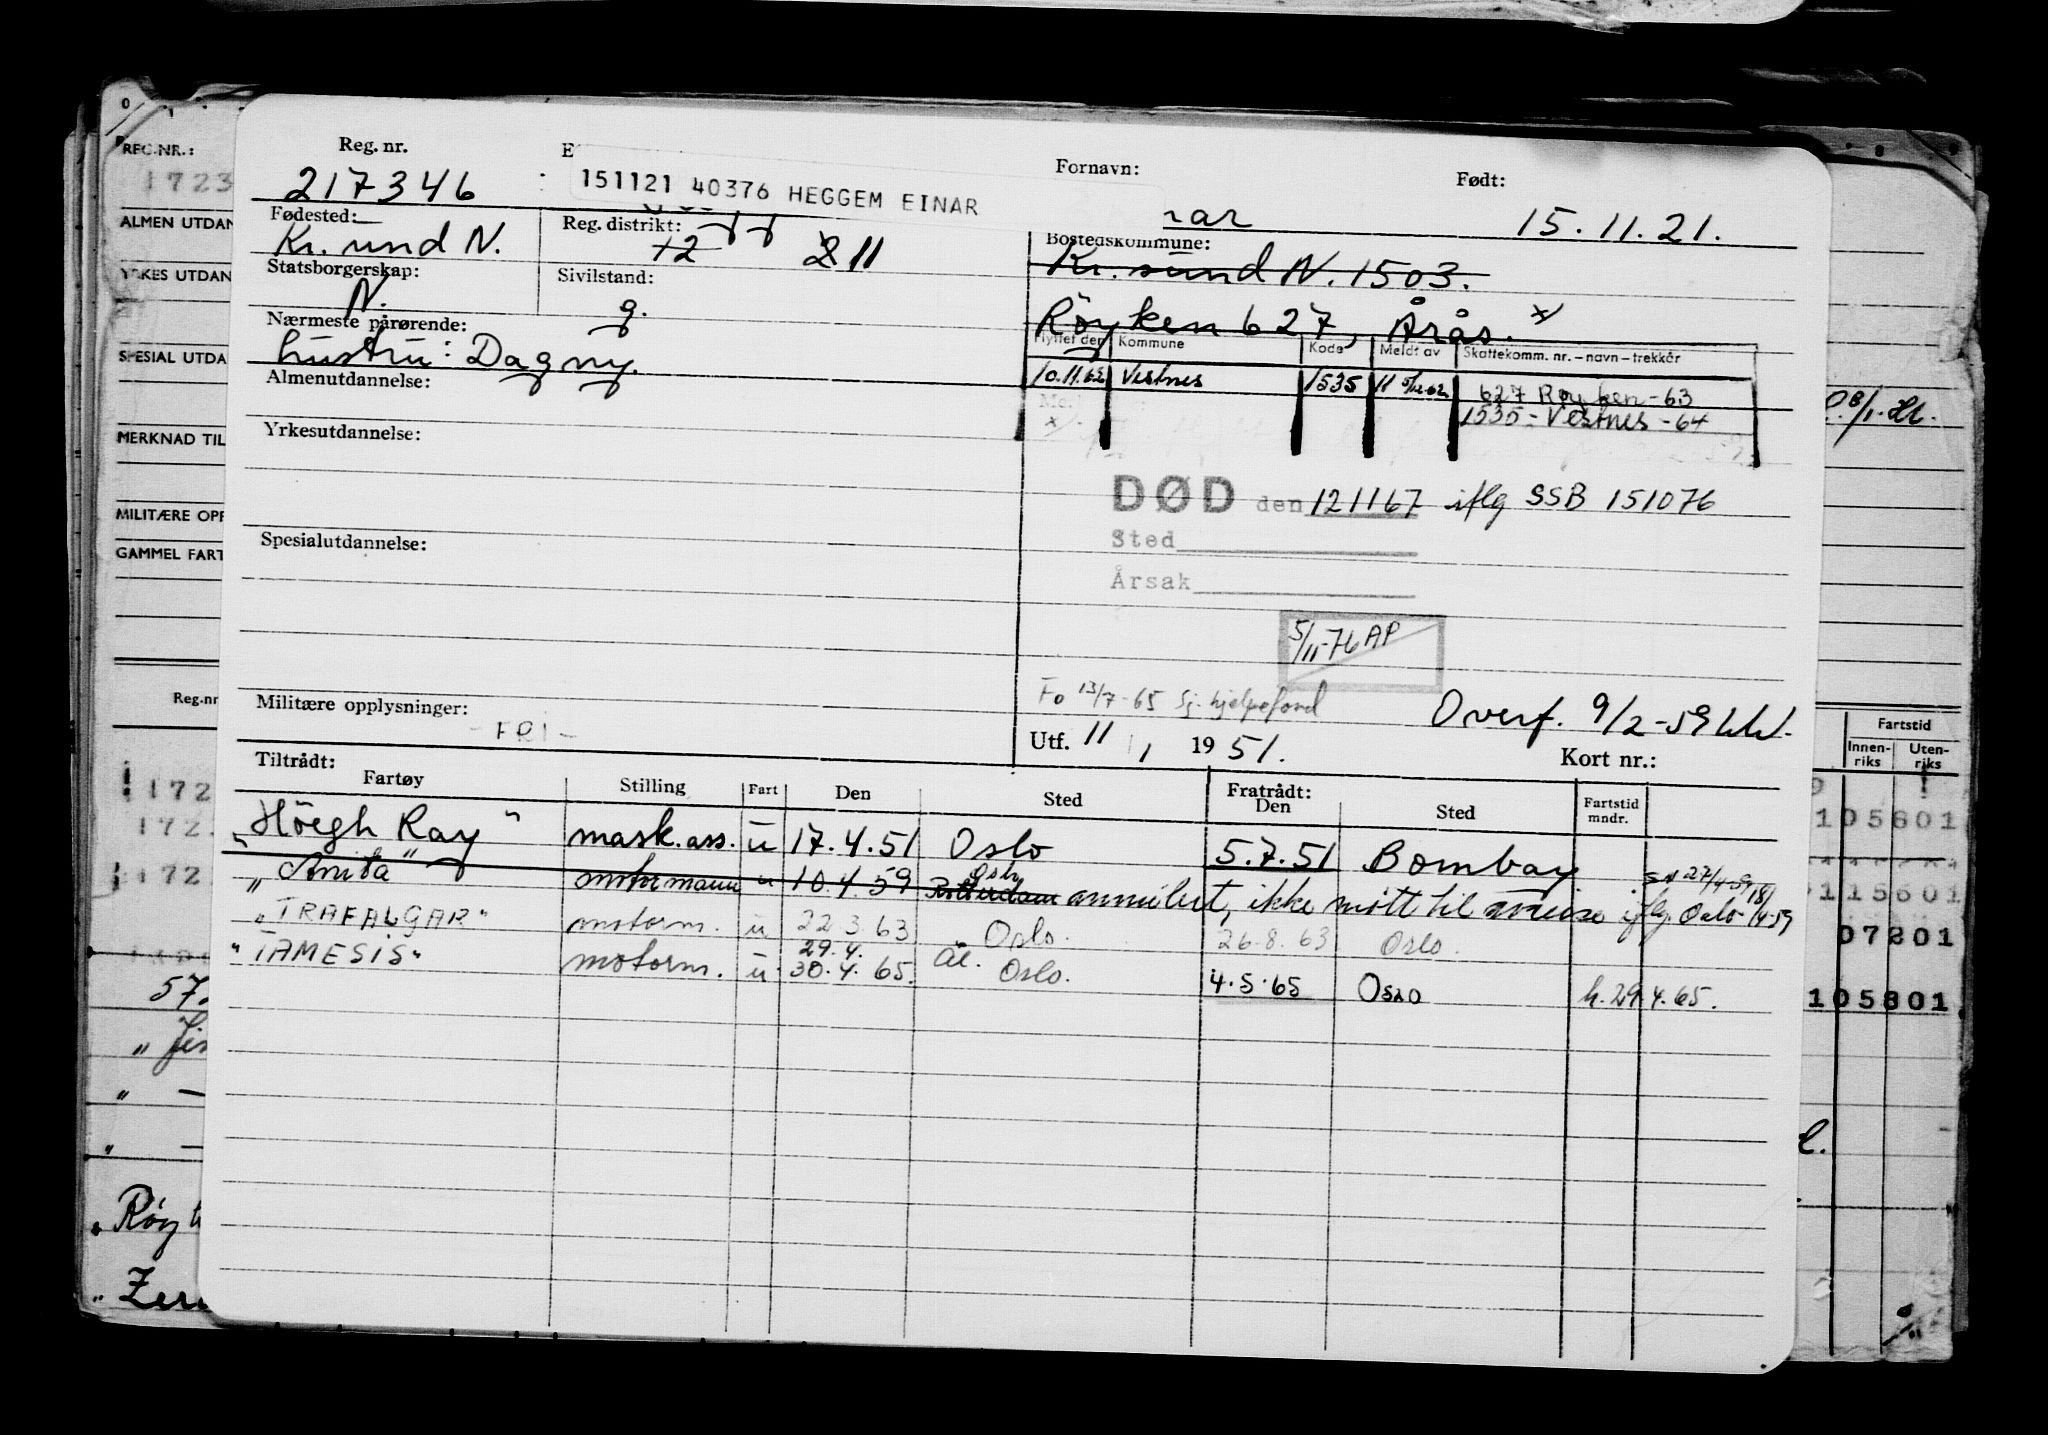 REG.NR.:
1723
ALMEN UTDAN
YRKES UTDAN
SPESIAL UTDA
MERKNAD TIL
MILITÆRE OPP
GAMMEL FART
Reg.nr
172
172
172
57
„ Røy
„ Zer
Reg. nr.
217346
E
151121 40376 HEGGEM EINAR
Fornavn:
nar
Født:
15.11.21.
Fødested:
Kr. sund N.
Reg. distrikt:
12 2 11
Bostedskommune:
Kr. sund N. 1503.
Röyken 627, Årås. x/
Statsborgerskap:
N.
Sivilstand:
g.
Nærmeste pårørende:
hustru: Dagny.
Flyttet den Kommune Kode Meldt av Skattekomm. nr. – navn – trekkår
10.11.62 Vestnes 1535 11 5/12-62 627 Røyken - 63
1535 - Vestnes - 64
Almenutdannelse:
Yrkesutdannelse:
DØD den 121167 iflg SSB 151076
Sted
Årsak
Spesialutdannelse:
5/11-76 AP
Fo 13/7-65 Sj. hjelpefond
Overf. 9/2-59
Militære opplysninger:
- FRI -
Utf. 11 / 1 1951.
Kort nr.:
Tiltrådt:
Fartøy Stilling Fart Den Sted Fratrådt: Den Sted Fartstid mndr.
„Höegh Ray" mask.ass. u 17.4.51 Oslo 5.7.51 Bombay
„Anita" motormann u 10.4.59 Oslo Rotterdam annulert, ikke mött til avreise iflg. Oslo 18/4-59
„TRAFALGAR" motorm. u 22.3.63 Oslo. 26.8.63 Oslo.
„TAMESIS" motorm. u 29.4. 30.4.65. Oslo. 4.5.65 Oslo h. 29.4.65.
Fartstid
Innen-riks Uten-riks
105801
115601
07201
105801